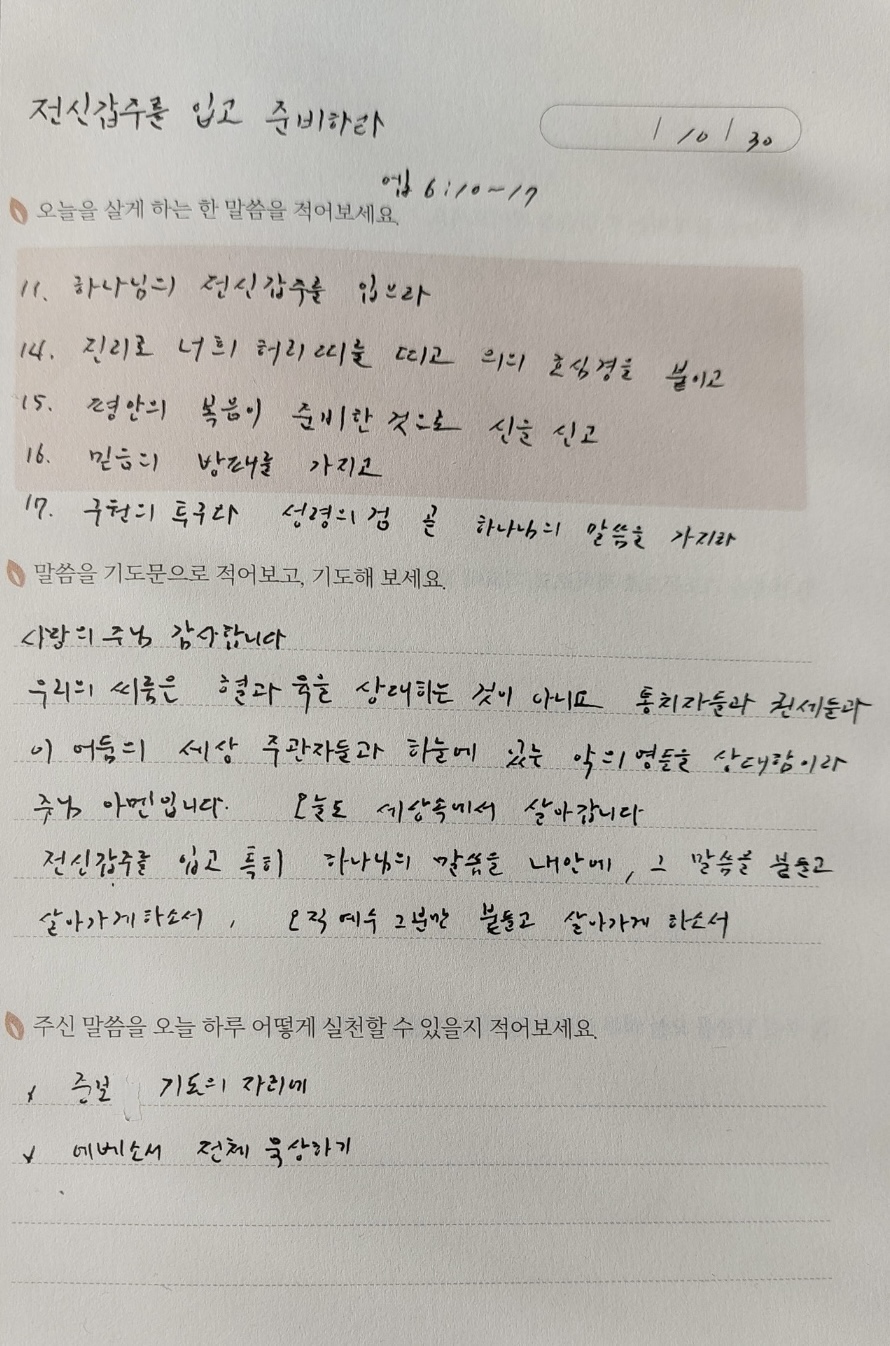 전신갑주를 입고 준비하라
/ 10 / 30
엡 6:10~17
오늘을 살게 하는 한 말씀을 적어보세요.
11. 하나님의 전신갑주를 입으라
14. 진리로 너희 허리띠를 띠고 의의 호심경을 붙이고
15. 평안의 복음이 준비한 것으로 신을 신고
16. 믿음의 방패를 가지고
17. 구원의 투구와 성령의 검 곧 하나님의 말씀을 가지라
말씀을 기도문으로 적어보고, 기도해 보세요.
사랑의 주님 감사합니다
우리의 씨름은 혈과 육을 상대하는 것이 아니요 통치자들과 권세들과
이 어둠의 세상 주관자들과 하늘에 있는 악의 영들을 상대함이라
주님 아멘입니다. 오늘도 세상속에서 살아갑니다
전신갑주를 입고 특히 하나님의 말씀을 내안에, 그 말씀을 붙들고
살아가게 하소서, 오직 예수 그분만 붙들고 살아가게 하소서
주신 말씀을 오늘 하루 어떻게 실천할 수 있을지 적어보세요.
v 중보 기도의 자리에
v 에베소서 전체 묵상하기